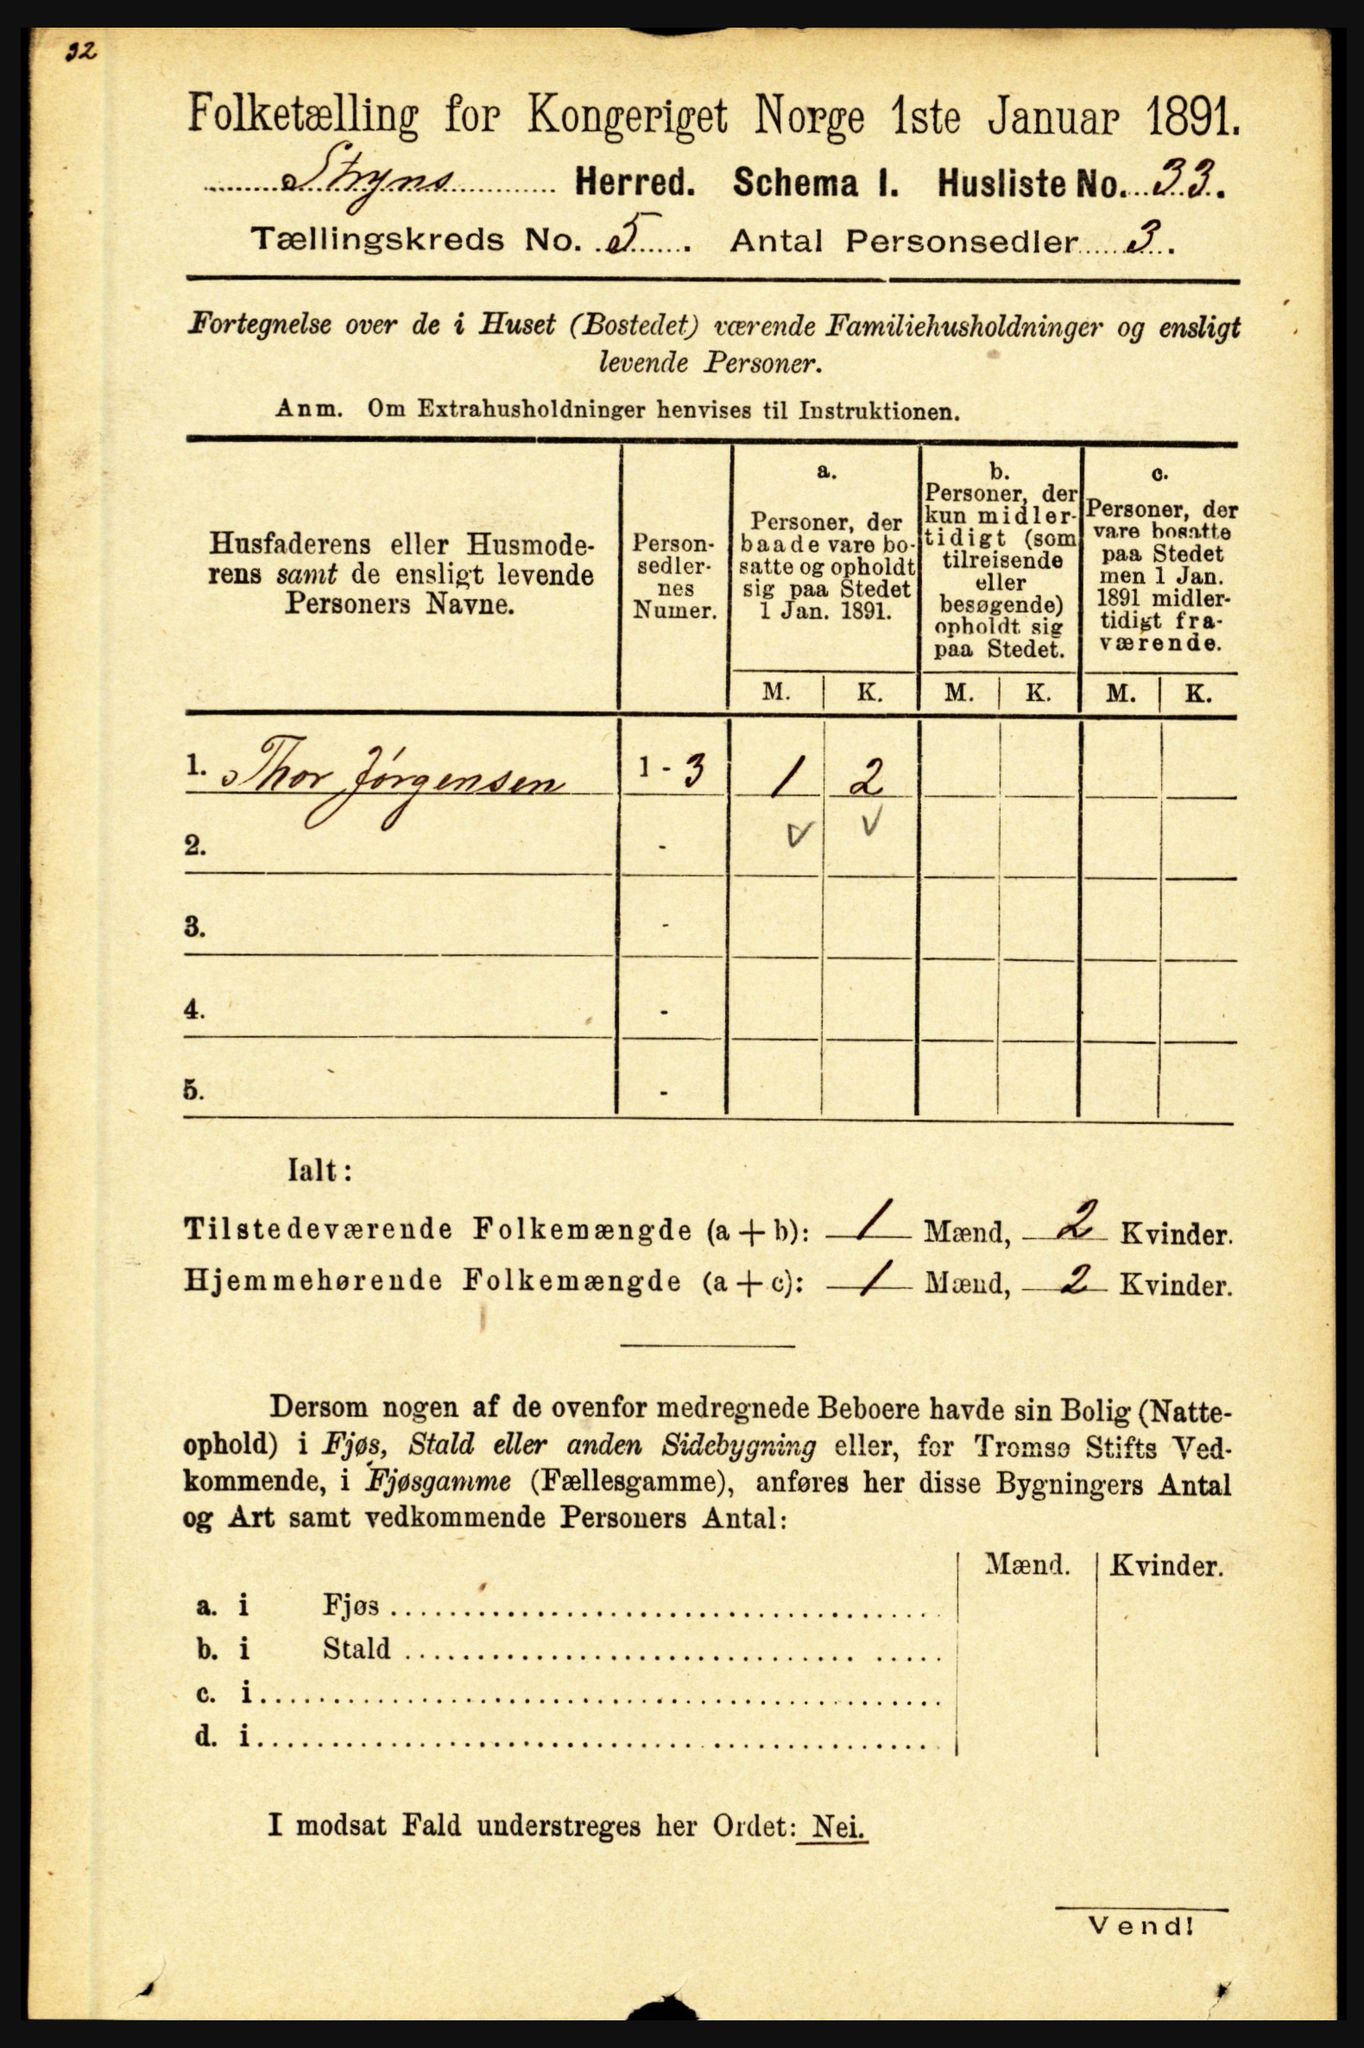 32
Folketælling for Kongeriget Norge 1ste Januar 1891.
Stryns Herred. Schema I. Husliste No. 33.
Tællingskreds No. 5. Antal Personsedler 3.
Fortegnelse over de i Huset (Bostedet) værende Familiehusholdninger og ensligt
levende Personer.
Anm. Om Extrahusholdninger henvises til Instruktionen.
Husfaderens eller Husmode-
rens samt de ensligt levende
Personers Navne.
Person-
sedler-
nes
Numer.
a.
Personer, der
baade vare bo-
satte og opholdt
sig paa Stedet
1 Jan. 1891.
b.
Personer, der
kun midler-
tidigt (som
tilreisende
eller
besøgende)
opholdt sig
paa Stedet.
c.
Personer, der
vare bosatte
paa Stedet
men 1 Jan.
1891 midler-
tidigt fra-
værende.
M. K. M. K. M. K.
1. Thor Jørgensen 1 - 3 1 2
2. - v v
3. -
4. -
5. -
Ialt:
Tilstedeværende Folkemængde (a + b): 1 Mænd, 2 Kvinder.
Hjemmehørende Folkemængde (a + c): 1 Mænd, 2 Kvinder.
Dersom nogen af de ovenfor medregnede Beboere havde sin Bolig (Natte-
ophold) i Fjøs, Stald eller anden Sidebygning eller, for Tromsø Stifts Ved-
kommende, i Fjøsgamme (Fællesgamme), anføres her disse Bygningers Antal
og Art samt vedkommende Personers Antal:
Mænd. Kvinder.
a. i Fjøs
b. i Stald
c. i
d. i
I modsat Fald understreges her Ordet: Nei.
Vend!